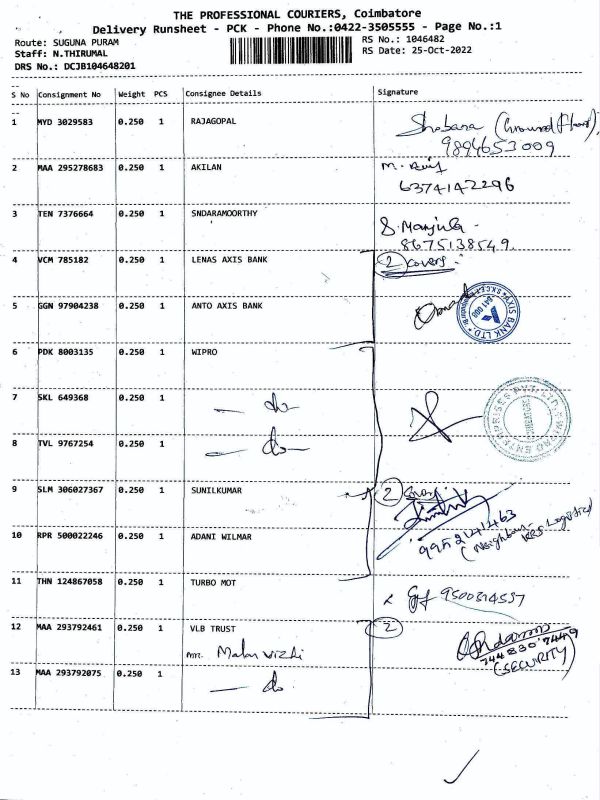 THE PROFESSIONAL COURIERS, Coimbatore
Delivery Runsheet - PCK - Phone No.:0422-3505555 - Page No.:1
Route: SUGUNA PURAM RS No.: 1046482
Staff: N.THIRUMAL RS Date: 25-Oct-2022
DRS No.: DCJB104648201
S No Consignment No Weight PCS Consignee Details Signature
1 MYD 3029583 0.250 1 RAJAGOPAL Shabana (Ground Floor),
9894653009
2 MAA 295278683 0.250 1 AKILAN M.
6374142296
3 TEN 7376664 0.250 1 SNDARAMOORTHY S. Manjula -
8675138549.
4 VCM 785182 0.250 1 LENAS AXIS BANK 2 covers
5 GGN 97904238 0.250 1 ANTO AXIS BANK
AXIS BANK LTD
6 PDK 8003135 0.250 1 WIPRO
7 SKL 649368 0.250 1
— do —
8 TVL 9767254 0.250 1
— do —
ENTERPRISES PVT. LTD.
9 SLM 306027367 0.250 1 SUNILKUMAR 2
9952141463
(Neighbour
Logistics)
10 RPR 500022246 0.250 1 ADANI WILMAR
11 THN 124867058 0.250 1 TURBO MOT
9500814537
12 MAA 293792461 0.250 1 VLB TRUST 2
mr. Malar vizhi
744830 7449
(SECURITY)
13 MAA 293792075 0.250 1
— do